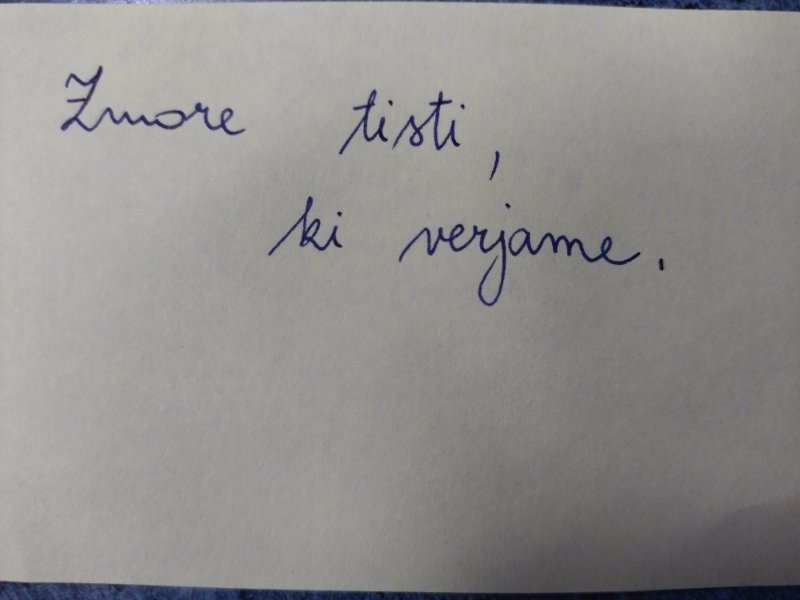 Zmore tisti,
ki verjame.